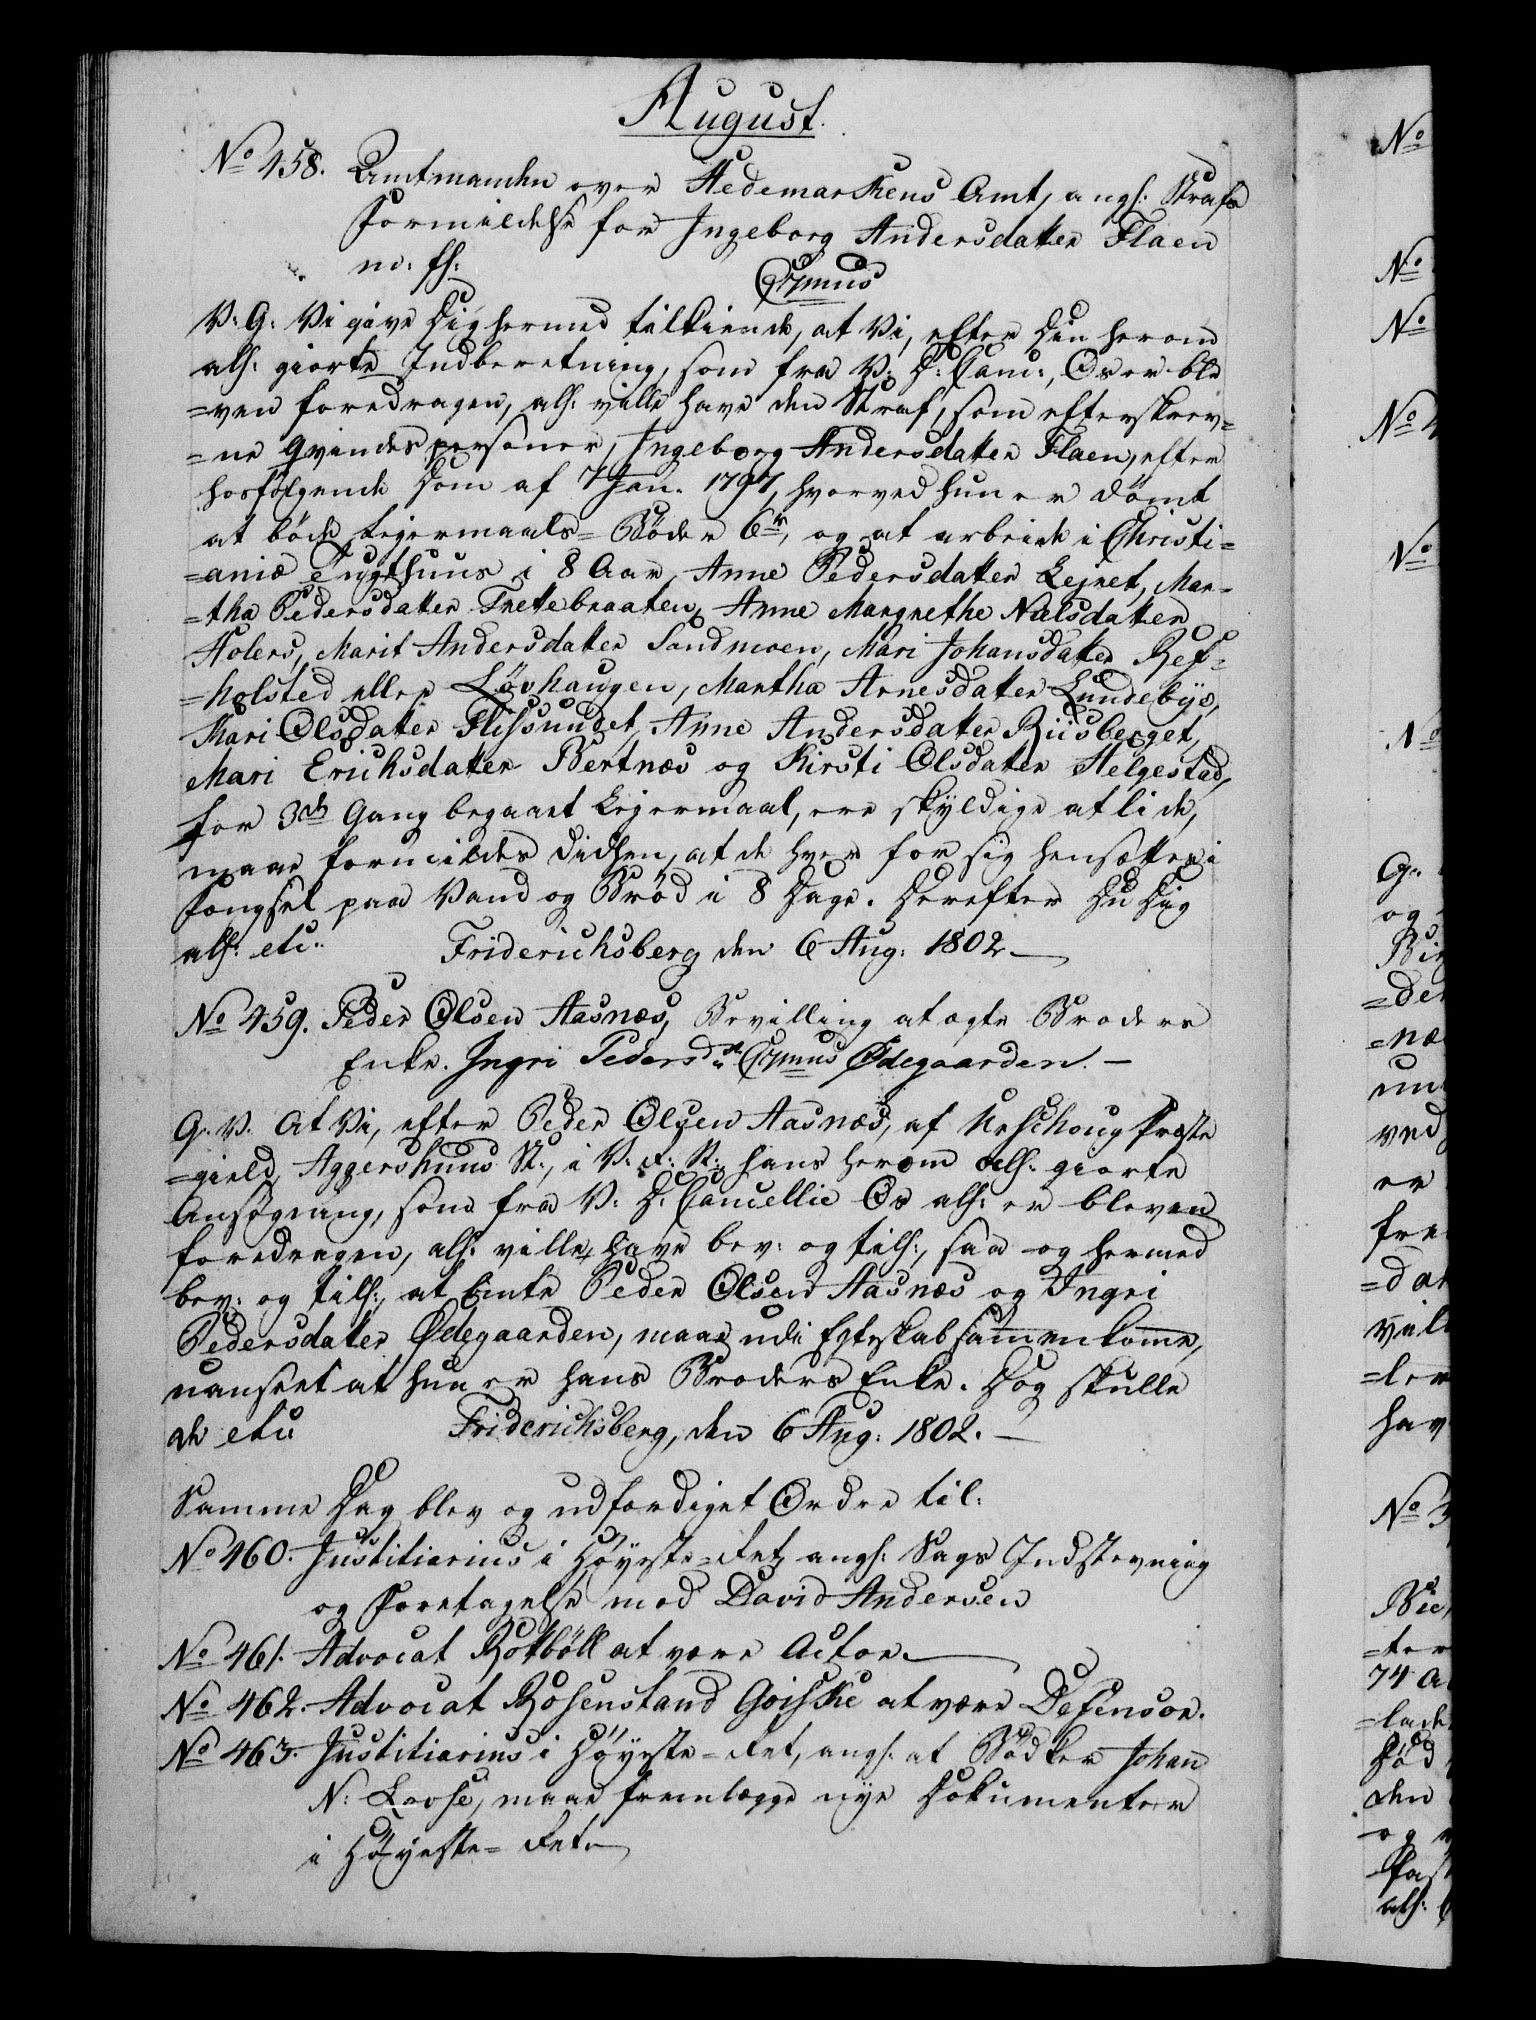 August.
No 458. Amtmanden over Hedemarkens Amt, angl: Strafs
Formildelse for Ingeborg Andersdatter Flaen
m: fl:
C7mus
V: G: Vi give Dig hermed tilkiende, at Vi, efter Din herom
all: giorte Indberetning, som fra V: D: Canc:, Os er ble
=ven foredragen, all: ville have den Straf, som efterskrev=
=ne Qvindespersoner, Ingeborg Andersdatter Flaen, efter
hosfølgende Dom af 7 Jan. 1797, hvorved hun er dömt
at böde Lejermaals=Böder 6 r, og at arbeide i Christi=
=aniæ Tugthuus i 8 Aar, Anne Pedersdatter Lejret, Mar=
=tha Pedersdatter Trettebraaten, Anne Margrethe Nielsdatter
Holers, Marit Andersdatter Sandmoen, Mari Johansdatter Ref=
=holsted eller Lövhaugen, Martha Arnesdatter Lundebye,
Mari Olsdatter Flissundet, Anne Andersdatter Riisberget,
Mari Erichsdatter Bertnæs og Kirsti Olsdatter Helgestad,
for 3de Gang begaaet Lejermaal, ere skyldige at lide,
maae formildes didhen, at de hver for sig hensættes i
Fængsel paa Vand og Bröd i 8 Dage. Derefter Du Dig
all: etc: Friderichsberg den 6 Aug: 1802
No 459. Peder Olsen Aasnæs, Bevilling at ægte Broders
Enke. Ingri Pedersdr C7mus Ødegaarden.
G. V. At Vi, efter Peder Olsen Aasnæs, af Næschoug Præste
=gield, Aggershuus St:, i V: R: N:, hans herom all: giorte
Ansøgning, som fra V: D: Cancellie Os all: er bleven
foredragen, all: ville have bev: og till:, saa og hermed
bev: og till:, at bmte Peder Olsen Aasnæs og Ingri
Pedersdatter Ødegaarden, maae udi Egteskab sammenkome,
uanseet at hun er hans Broders Enke. Dog skulle
de etc Friderichsberg, den 6 Aug: 1802.
Samme Dag blev og udfærdiget Ordre til:
No 460. Justitiarius i Höyeste=Ret, angl: Sags Indstevning
og Foretagelse mod David Andersen
No 461. Advocat Rottböll at være Actor.
No 462. Advocat Rosenstand Goiske at være Defensor.
No 463. Justitiarius i Höyeste=Ret, angl: at Bödker Johan
N: Lovse, maae fremlægge nye Dokumenter
i Höyeste=Ret.
No
No
No
No 4
No
No
G.
og
=der
=næ
und
ved
er
fre
=dat
vil
=ler
hav
No 3
=ter
74 A
=lade
död
den
og
all: